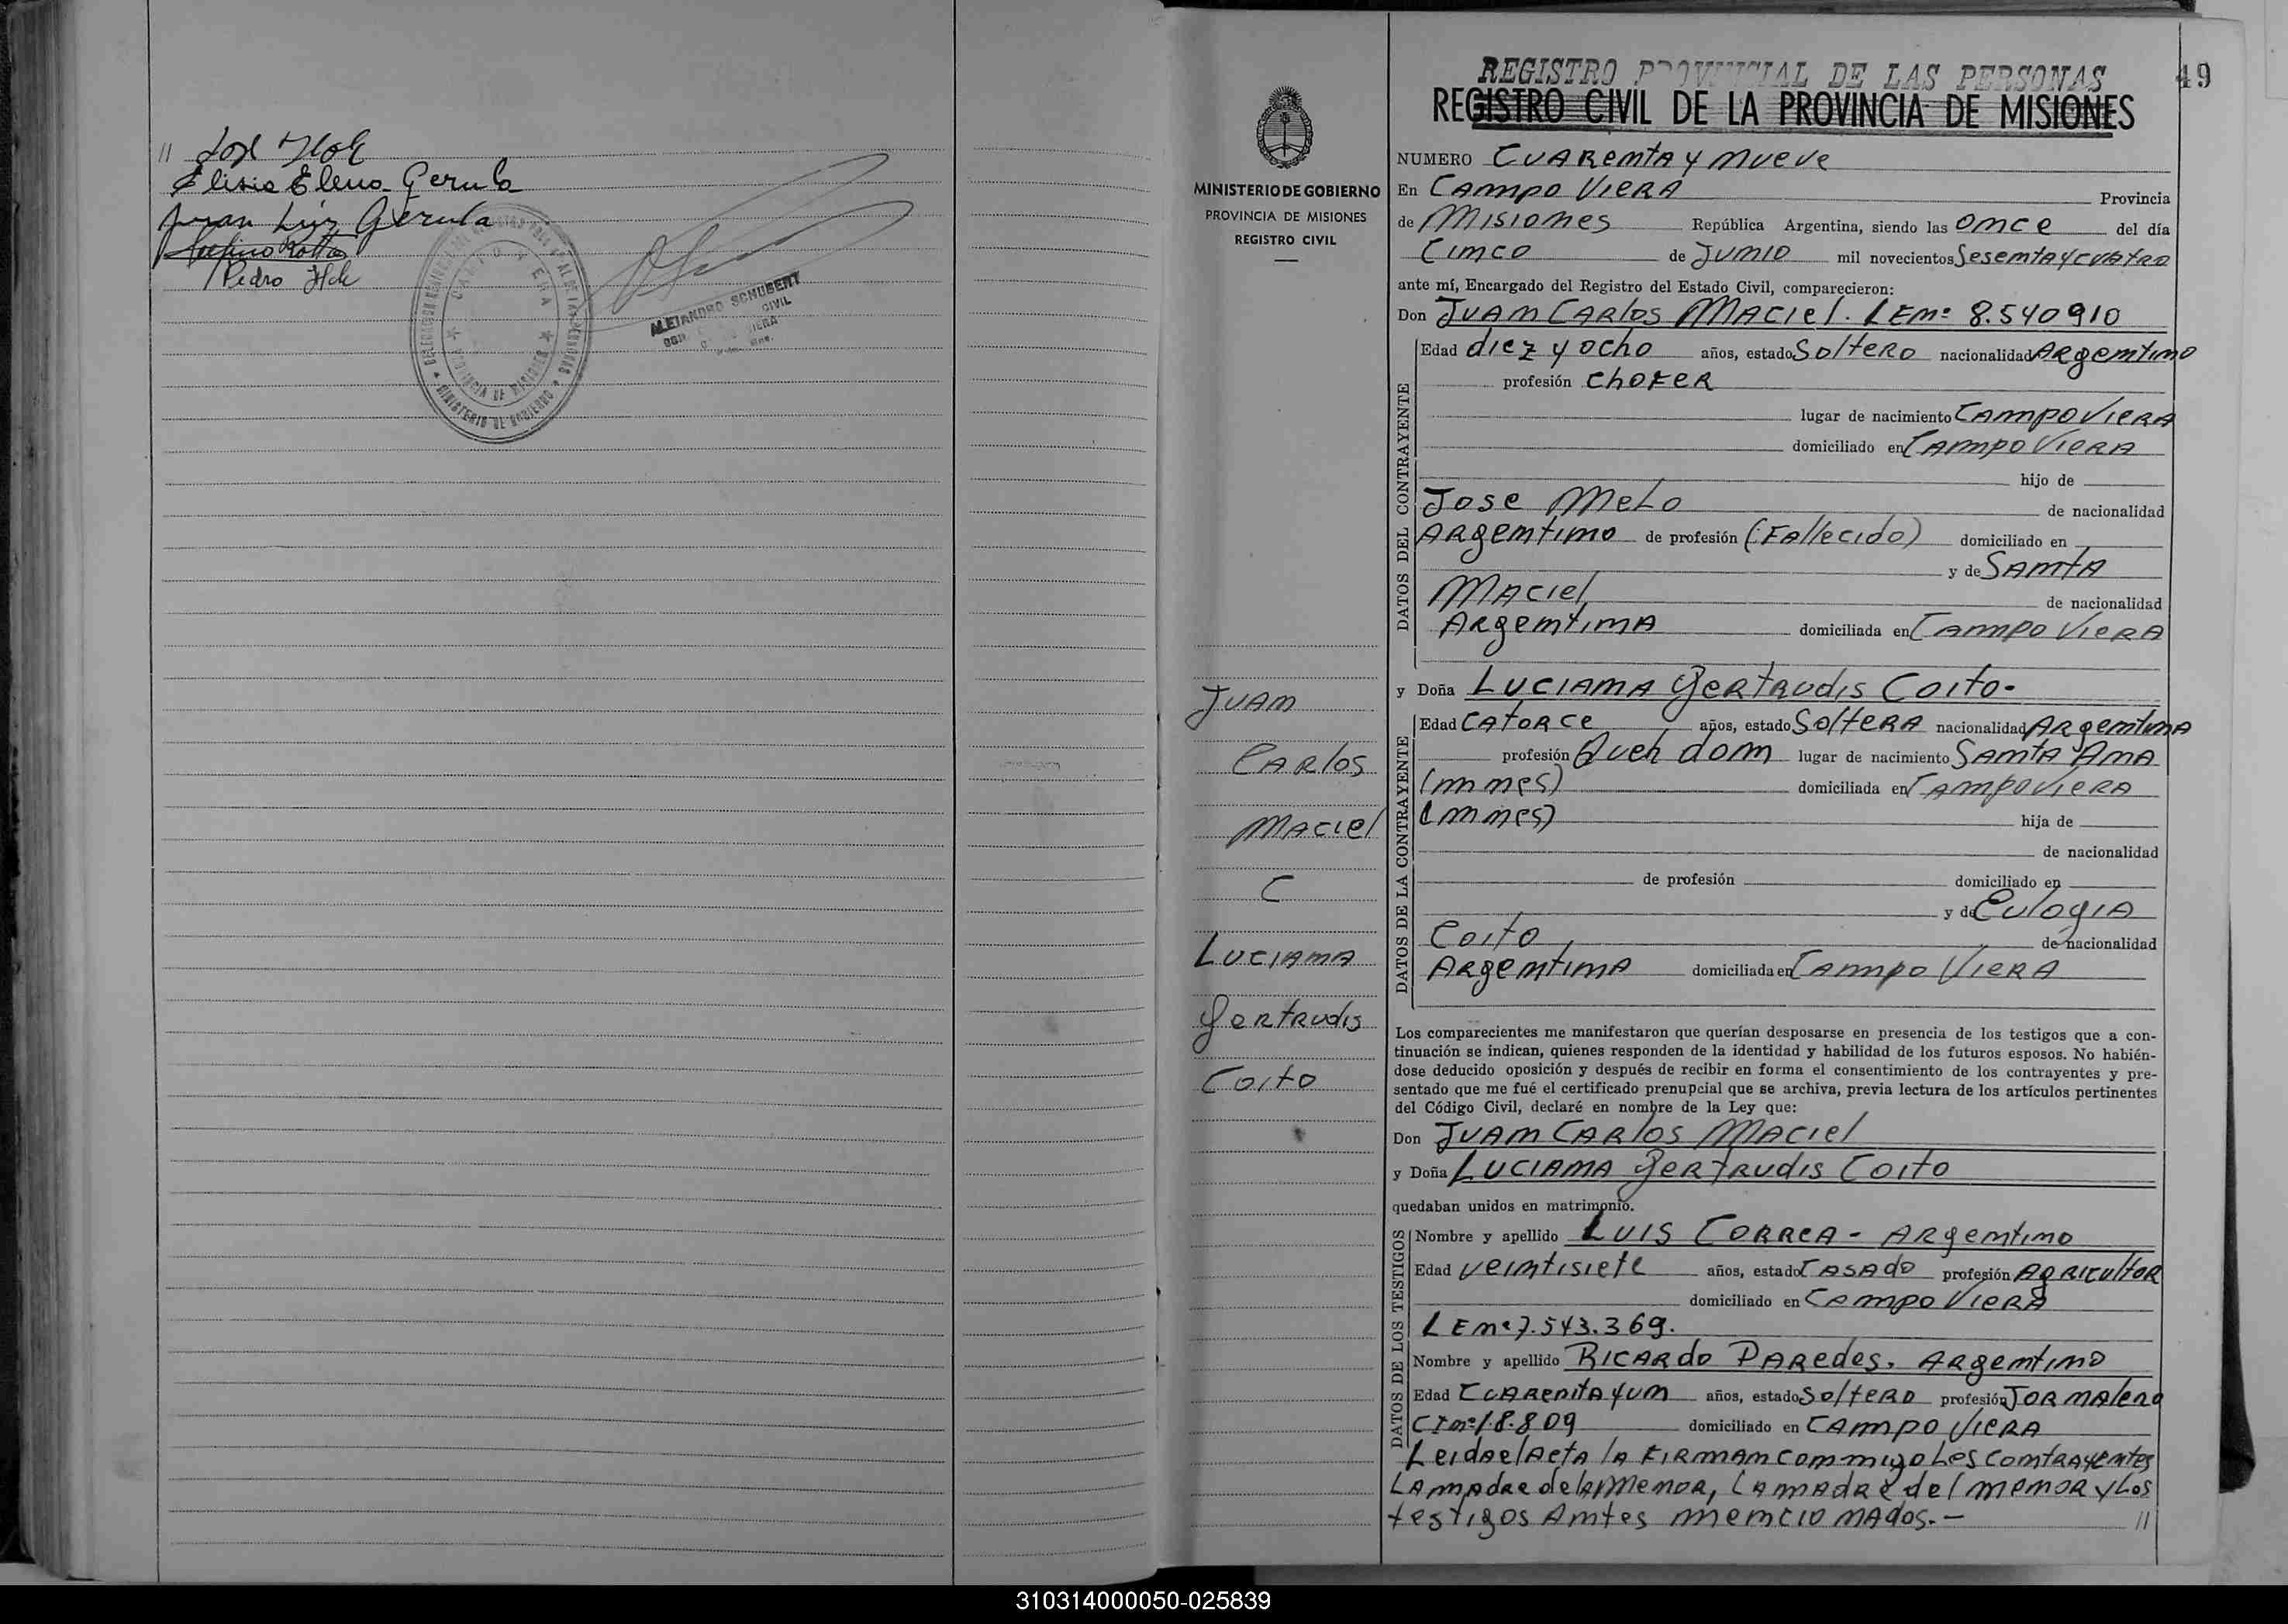 // José Hok
Elisia Elena Gerula
Juan Luis Gerula
Pedro Hok
ALEJANDRO SCHUBERT
CIVIL
PROVINCIA DE MISIONES
MINISTERIO DE GOBIERNO
MINISTERIO DE GOBIERNO
PROVINCIA DE MISIONES
REGISTRO CIVIL
JUAN
CARLOS
MACIEL
C
LUCIANA
GERTRUDIS
COITO
REGISTRO PROVINCIAL DE LAS PERSONAS
49
REGISTRO CIVIL DE LA PROVINCIA DE MISIONES
NUMERO CUARENTA y NUEVE
En CAMPO VIERA Provincia
de MISIONES República Argentina, siendo las ONCE del día
CINCO de JUNIO mil novecientos SESENTA y CUATRO
ante mí, Encargado del Registro del Estado Civil, comparecieron:
Don JUAN CARLOS MACIEL. LENº 8.540910
DATOS DEL CONTRAYENTE
Edad diez y ocho años, estado SOLTERO nacionalidad ARGENTINO
profesión CHOFER
lugar de nacimiento CAMPO VIERA
domiciliado en CAMPO VIERA
hijo de
JOSE MELO de nacionalidad
ARGENTINO de profesión (FALLECIDO) domiciliado en
y de SANTA
MACIEL de nacionalidad
ARGENTINA domiciliada en CAMPO VIERA
y Doña LUCIANA GERTRUDIS COITO-
DATOS DE LA CONTRAYENTE
Edad CATORCE años, estado SOLTERA nacionalidad ARGENTINA
profesión Queh dom lugar de nacimiento SANTA ANA
(mnes) domiciliada en CAMPO VIERA
(mnes) hija de
de nacionalidad
de profesión domiciliado en
y de EULOGIA
COITO de nacionalidad
ARGENTINA domiciliada en CAMPO VIERA
Los comparecientes me manifestaron que querían desposarse en presencia de los testigos que a con-
tinuación se indican, quienes responden de la identidad y habilidad de los futuros esposos. No habién-
dose deducido oposición y después de recibir en forma el consentimiento de los contrayentes y pre-
sentado que me fué el certificado prenupcial que se archiva, previa lectura de los artículos pertinentes
del Código Civil, declaré en nombre de la Ley que:
Don JUAN CARLOS MACIEL
y Doña LUCIANA GERTRUDIS COITO
quedaban unidos en matrimonio.
DATOS DE LOS TESTIGOS
Nombre y apellido LUIS CORREA - ARGENTINO
Edad VEINTISIETE años, estado CASADO profesión AGRICULTOR
domiciliado en CAMPO VIERA
LENº 7.543.369.
Nombre y apellido RICARDO PAREDES. ARGENTINO
Edad CUARENTA y UN años, estado SOLTERO profesión JORNALERO
CI nº 18.809 domiciliado en CAMPO VIERA
Leida el Acta la FIRMAN conmigo Los CONTRAYENTES
LA MADRE de la MENOR, LA MADRE del MENOR y LOS
TESTIGOS ANTES MENCIONADOS.- //
310314000050-025839